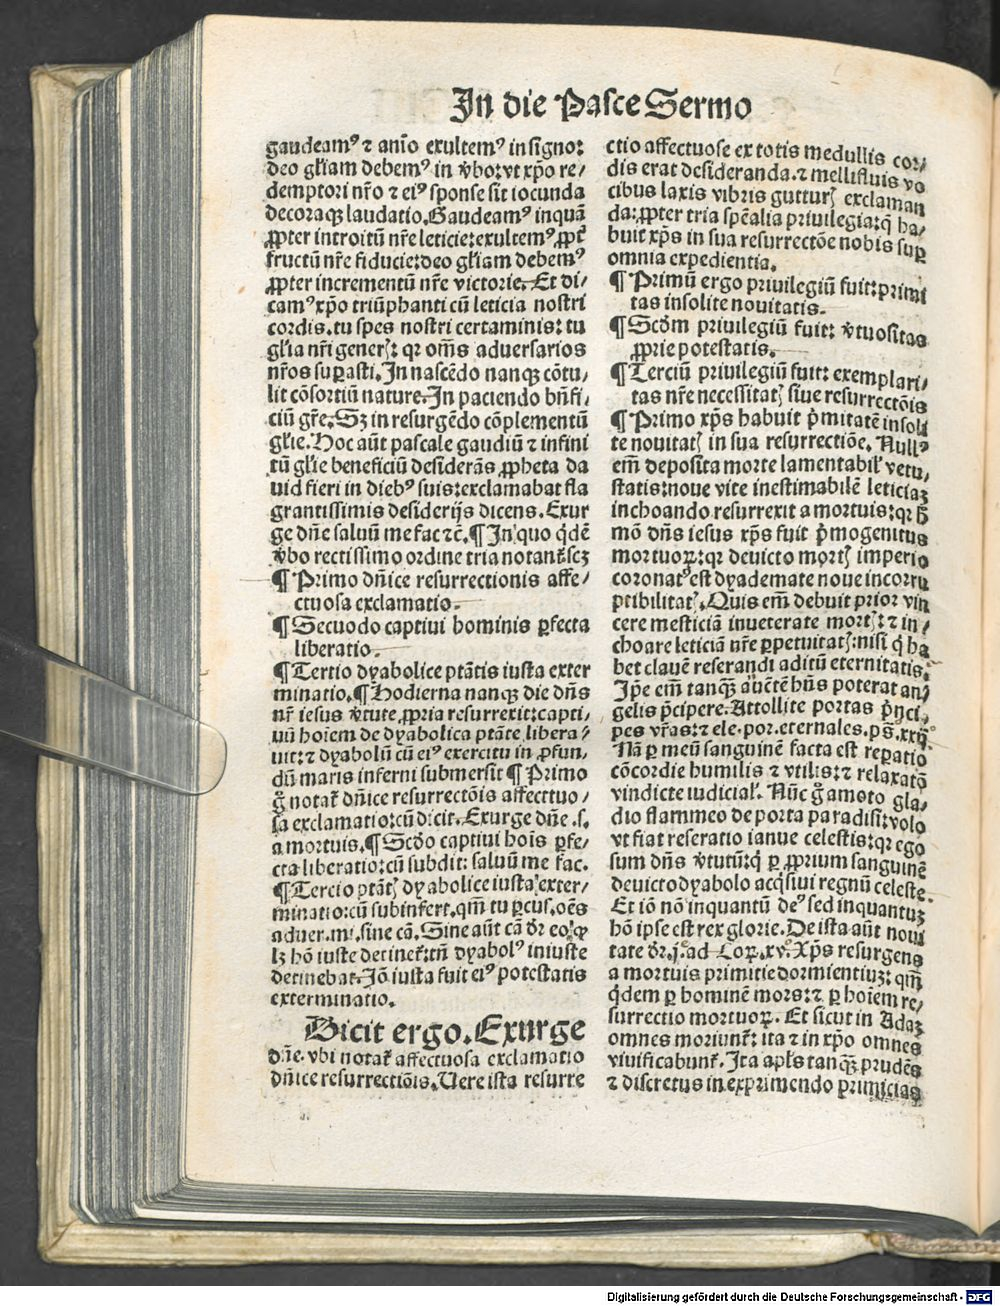 In die Pasce Sermo
gaudeamꝰ ⁊ anīo exultemꝰ insigno:
deo gl̄iam debemꝰ in v̄bo: vt xp̄o re⸗
demptori nr̄o ⁊ eiꝰ sponse sit iocunda
decoraqꝫ laudatio. Gaudeamꝰ inquā
ꝓpter introitū nr̄e leticie: exultemꝰ ꝓpt̄
fructū nr̄e fiducie: deo gl̄iam debemꝰ
ꝓpter incrementū nr̄e victorie. Et di⸗
camꝰ xp̄o triūphanti cū leticia nostri
cordis. tu spes nostri certaminis: tu
gl̄ia nr̄i generꝭ: qꝛ om̄s aduersarios
nr̄os suꝑasti. In nascēdo nanqꝫ cōtu⸗
lit cōsortiū nature. In paciendo bn̄fi⸗
ciū gr̄e. Sꝫ in resurgēdo cōplementū
gl̄ie. Hoc aūt pascale gaudiū ⁊ infini
tū gl̄ie beneficiū desiderās ꝓpheta da
uid fieri in diebꝰ suis: exclamabat fla
grantissimis desiderijs dicens. Exur
ge dn̄e saluū me fac ⁊c̄. ¶ In quo q̇dē
v̄bo rectissimo ordine tria notant̄ scꝫ
¶ Primo dn̄ice resurrectionis affe⸗
ctuosa exclamatio.
¶ Secuodo captiui hominis ꝑfecta
liberatio.
¶ Tertio dyabolice ptātis iusta exter
minatio. ¶ Hodierna nanqꝫ die dn̄s
nr̄ iesus v̄tute ꝓpria resurrexit: capti⸗
uū hoīem de dyabolica ptāte libera⸗
uit: ⁊ dyabolū cū eiꝰ exercitu in ꝓfun⸗
dū maris inferni submersit ¶ Primo
g̊ notat̄ dn̄ice resurrectōis affecttuo⸗
sa exclamatio: cū dicit. Exurge dn̄e .s.
a mortuis. ¶ Scd̄o captiui hoīs ꝑfe⸗
cta liberatio: cū subdit: saluū me fac.
¶ Tercio ptātꝭ dyabolice iusta exter⸗
minatio: cū subinfert. qm̄ tu ꝑcus. oēs
aduer. mi. sine cā. Sine aūt cā dr̄ eo: ꝙ
lꝫ hō iuste detinet̄: tn̄ dyabolꝰ iniuste
detinebat. Jō iusta fuit eiꝰ potestatis
exterminatio.
Dicit ergo. Exurge
dn̄e. vbi notat̄ affectuosa exclamatio
dn̄ice resurrectiōis. Uere ista resurre
ctio affectuose ex totis medullis cor⸗
dis erat desideranda. ⁊ mellifluis vo
cibus laxis vibris gutturꝭ exclaman
da: ꝓpter tria spēalia priuilegia: q̄ ha⸗
buit xp̄s in sua resurrectōe nobis suꝑ
omnia expedientia.
¶ Primū ergo priuilegiū fuit: primi
tas insolite nouitatis.
¶ Scd̄m priuilegiū fuit: v̄tuositas
ꝓprie potestatis.
¶ Terciū priuilegiū fuit: exemplari⸗
tas nr̄e necessitatꝭ siue resurrectōis
¶ Primo xp̄s habuit p̄mitatē insoli
te nouitatꝭ in sua resurrectiōe. Nullꝰ
em̄ deposita morte lamentabil' vetu⸗
statis: noue vite inestimabilē leticiaꝫ
inchoando resurrexit a mortuis: qꝛ h̄
mō dn̄s iesus xp̄s fuit p̄mogenitus
mortuoꝝ: qꝛ deuicto mortꝭ imperio
coronatꝰ est dyademate noue incorru
ptibilitatꝭ. Quis em̄ debuit prior vin
cere mesticiā inueterate mortꝭ: ⁊ in⸗
choare leticiā nr̄e ꝑpetuitatꝭ: nisi q̇ ha
bet clauē reserandi aditū eternitatis.
Jp̄e em̄ tanqꝫ auctētē hn̄s poterat an⸗
gelis p̄cipere. Attollite portas p̄nci⸗
pes vr̄as: ⁊ ele. por. eternales. ps̄. xxiȷ̊.
Nā ꝑ meū sanguinē facta est reꝑatio
cōcordie humilis ⁊ vtilis: ⁊ relaxatō
vindicte iudicial'. Nūc g̊ amoto gla⸗
dio flammeo de porta paradisi: volo
vt fiat reseratio ianue celestis: qꝛ ego
sum dn̄s v̄tutū: q̇ ꝑ ꝓprium sanguinē
deuicto dyabolo acq̇siui regnū celeste.
Et iō nō inquantū deꝰ sed inquantuꝫ
hō ipse est rex glorie. De ista aūt noui
tate dr̄. j. ad Coꝝ. xv. Xp̄s resurgens
a mortuis primitie dormientiuꝫ: qm̄
q̇dem ꝑ hominē mors: ⁊ ꝑ hoīem re⸗
surrectio mortuoꝝ. Et sicut in Adaꝫ
omnes moriunt̄: ita ⁊ in xp̄o omnes
viuificabunt̄. Ita apl̄s tanqꝫ prudēs
⁊ discretus in exprimendo primicias
Digitalisierung gefördert durch die Deutsche Forschungsgemeinschaft - DFG